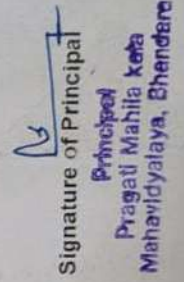 Signature of Principal
Principal
Pragati Mahila Kala
Mahavidyalaya, Bhandara